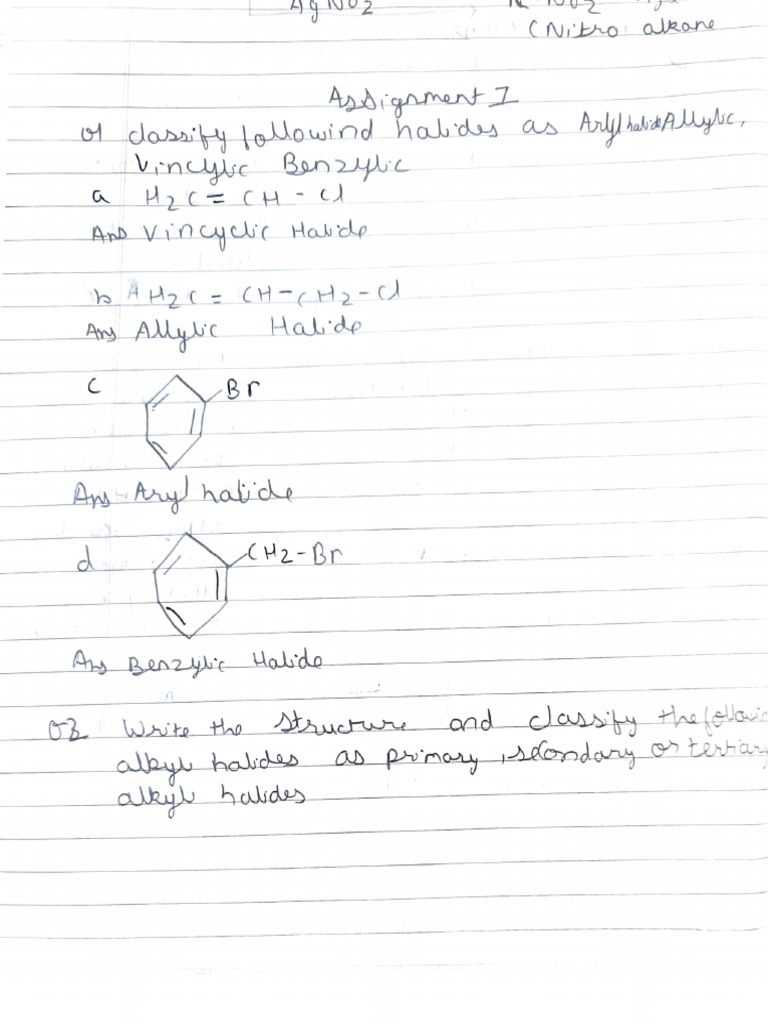 AgNO2
(Nitro alkane
Assignment I
classify followind halides as Aryl halide Allylic,
Vincylic Benzylic
a H2C = CH - Cl
Ans Vincyclic Halide
b H2C = CH-CH2-Cl
Ans Allylic Halide
c
Br
Ans Aryl halide
d
CH2-Br
Ans Benzylic Halide
Write the structure and classify the
alkyl halides as primary, secondary or tertiary
alkyl halides